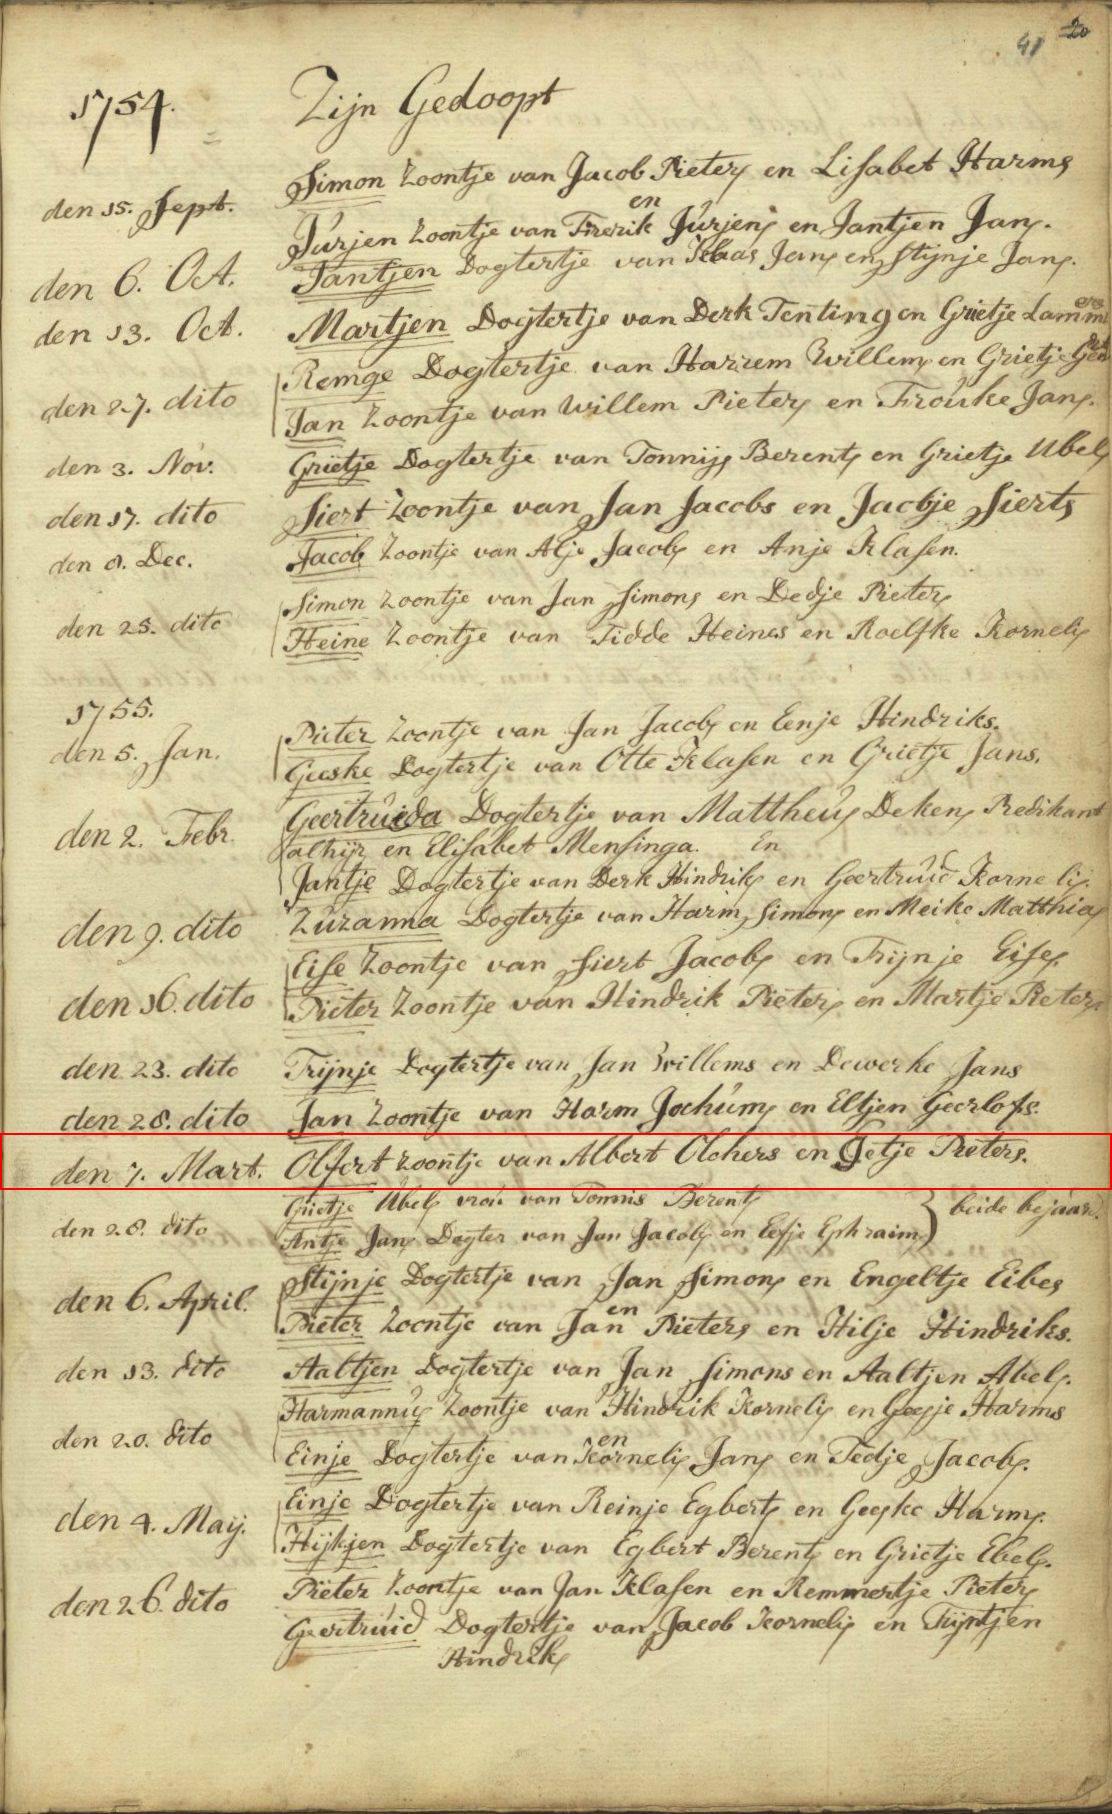 41 20
1754. Zijn Gedoopt
den 15. Sept. Simon Zoontje van Jacob Pieters en Lisabet Harms
en
Jurjen Zoontje van Frerik Jurjens en Jantjen Jans.
den 6. Oct. Jantjen Dogtertje van Klaas Jans en Stijnje Jans.
den 13. Oct. Martjen Dogtertje van Derk Tenting en Grietje Lammers
den 27. dito Remge Dogtertje van Harrem Willems en Grietje
Jan Zoontje van Willem Pieters en Frouke Jans.
den 3. Nov. Grietje Dogtertje van Tonnijs Berents en Grietje Ubels
den 17. dito Siert Zoontje van Jan Jacobs en Jacbje Sierts
den 8. Dec. Jacob Zoontje van Alje Jacobs en Anje Klasen.
Simon Zoontje van Jan Simons en Dedje Pieters
den 25. dito Heine Zoontje van Tidde Heines en Roelfke Kornelis
1755.
den 5. Jan. Pieter Zoontje van Jan Jacobs en Eenje Hindriks.
Geeske Dogtertje van Otte Klasen en Grietje Jans.
den 2. Febr. Geertruida Dogtertje van Mattheus Dekens Predikant
alhijr en Elisabet Mensinga. En
Jantje Dogtertje van Derk Hindriks en Geertruid Kornelis.
den 9. dito Zuzanna Dogtertje van Harm Simons en Meike Matthias
Eise Zoontje van Siert Jacobs en Trijnje Eises.
den 16. dito Pieter Zoontje van Hindrik Pieters en Martje Pieters.
den 23. dito Trijnje Dogtertje van Jan Willems en Dewerke Jans
den 28. dito Jan Zoontje van Harm Jochums en Eltjen Geerlofs.
den 7. Mart. Olfert Zoontje van Albert Olchers en Getje Pieters.
Grietje Ubels vrou van Tonnis Berents
den 28. dito Antje Jans Dogter van Jan Jacobs en Eefje Ephraims } beide bejaard.
Stijnje Dogtertje van Jan Simons en Engeltje Eibes
den 6. April. en
Pieter Zoontje van Jan Pieters en Hilje Hindriks.
den 13. dito Aaltjen Dogtertje van Jan Simons en Aaltjen Abels.
Harmannus Zoontje van Hindrik Kornelis en Geesje Harms
den 20. dito en
Einje Dogtertje van Kornelis Jans en Tedje Jacobs.
Einje Dogtertje van Reinje Egberts en Geeske Harms.
den 4. Maij. Hijkjen Dogtertje van Egbert Berents en Grietje Ebels.
den 26. dito Pieter Zoontje van Jan Klasen en Remmertje Pieters
Geertruid Dogtertje van Jacob Kornelis en Trijntjen
Hindriks